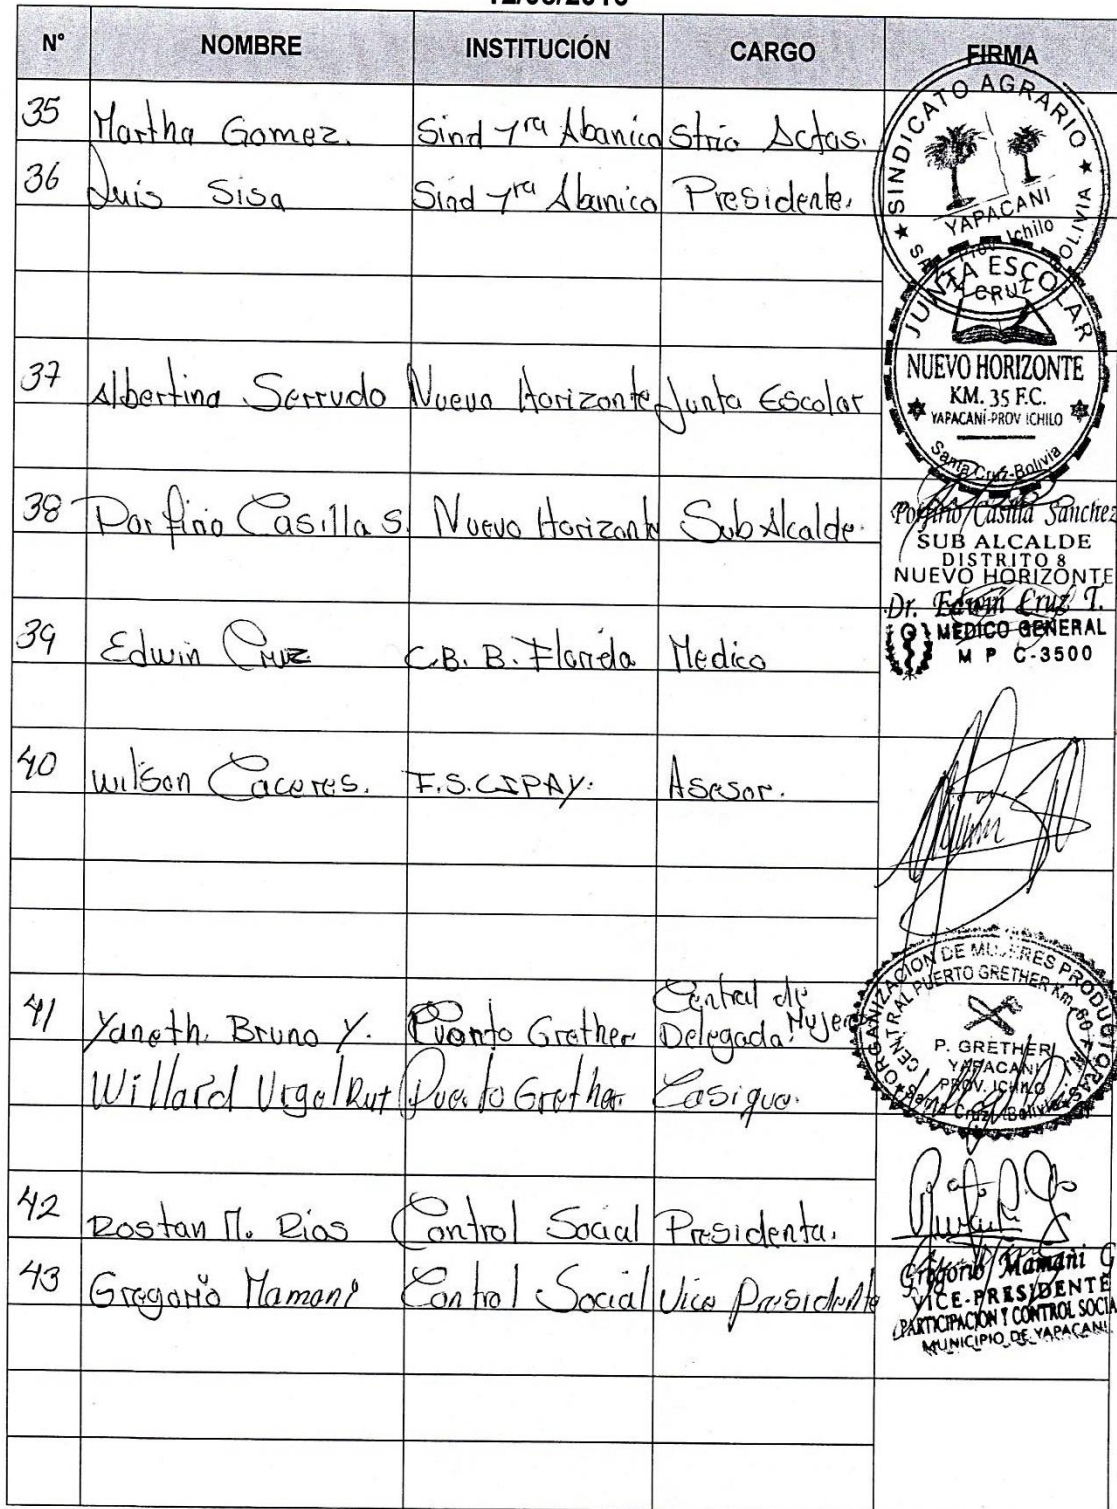 N° NOMBRE INSTITUCIÓN CARGO FIRMA
35 Martha Gomez. Sind 1ra Abanico Stria Actas.
36 Luis Sisa Sind 1ra Abanico Presidente.
SINDICATO AGRARIO
YAPACANI
Prov. Ichilo
BOLIVIA
CRUZ
JUNTA ESCOLAR
NUEVO HORIZONTE
KM. 35 F.C.
YAPACANÍ-PROV ICHILO
Santa Cruz-Bolivia
37 Albertina Serrudo Nuevo Horizonte Junta Escolar
38 Porfirio Casilla S. Nuevo Horizonte Sub Alcalde.
Porfirio Casilla Sanchez
SUB ALCALDE
DISTRITO 8
NUEVO HORIZONTE
39 Edwin Cruz C.B. B. Florida Medico
Dr. Edwin Cruz T.
MEDICO GENERAL
M P C-3500
40 Wilson Caceres. F.S.CIPAY. Asesor.
41 Yaneth. Bruno Y. Puerto Grether Central de Mujeres
Delegada.
ORGANIZACION DE MUJERES PRODUCTORAS
CENTRAL PUERTO GRETHER Km. 60
P. GRETHER
YAPACANI
PROV. ICHILO
Santa Cruz - Bolivia
Willard Puerto Grether Casique.
42 Rostan M. Rios Control Social Presidenta.
43 Gregorio Mamani Control Social Vice Presidente
Gregorio Mamani G
VICE-PRESIDENTE
PARTICIPACION Y CONTROL SOCIA
MUNICIPIO DE YAPACANI